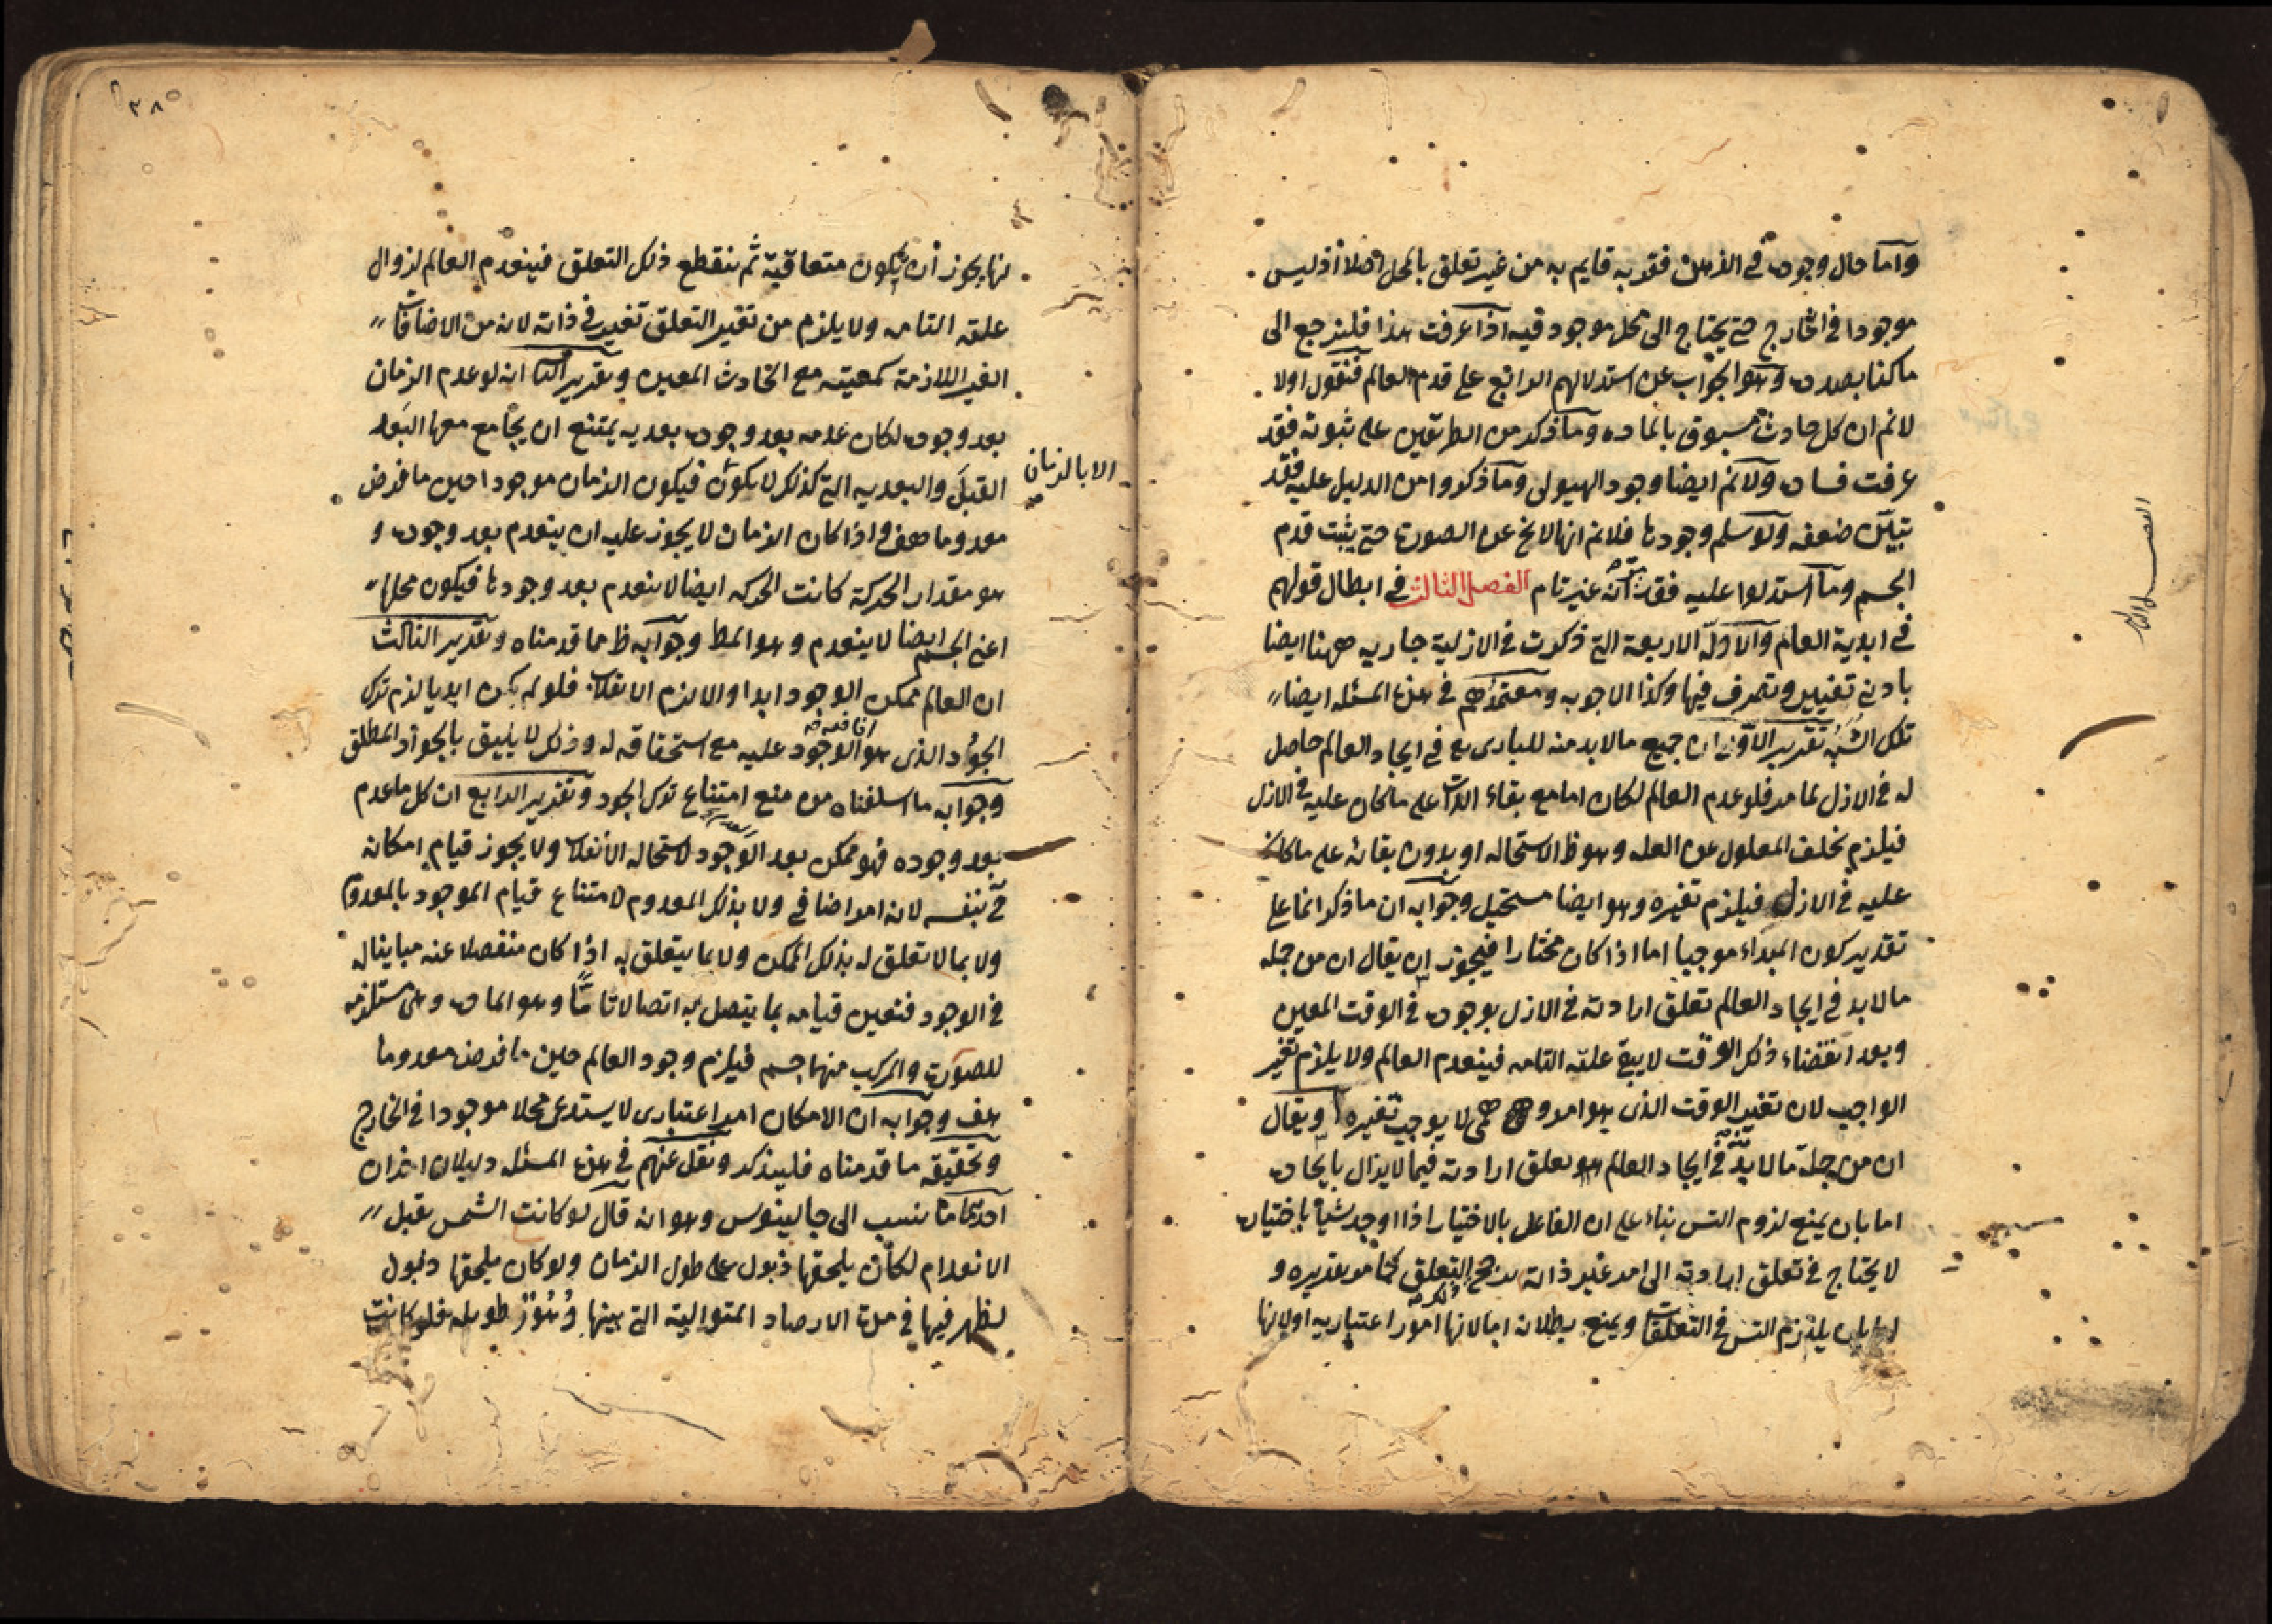 وأما حال وجوده في الذهن فقد به قايم به من غير تعلق بالمحل اصلا اذ ليس
موجودا في الخارج حتى يحتاج الى محل موجود فيه اذا عرفت هذا فلنرجع الى
ما كنا بصدده وهو الجواب عن استدلالهم الرابع على قدم العالم فنقول اولا
لانم ان كل حادث مسبوق بالماده وما ذكر من الطريقين على ثبوته فقد
عرفت فساده ولانم ايضا وجود الهيولى وما ذكروا من الدليل عليه فقد
تبين ضعفه ولو سلم وجودها فلانم انها لا تخ عن الصورة حتى يثبت قدم
الجسم وما استدلوا عليه فقد انه غير تام الفصل الثالث في ابطال قولهم
في ابدية العالم والادلة الاربعة التي ذكرت في الازلية جاريه ههنا ايضا
بادنى تغيير وتصرف فيها وكذا الاجوبه ومعتمدهم في هذه المسئله ايضا
تلك الشبه تقرير الاول ان جميع مالابد منه للبارى تع في ايجاد العالم حاصل
له في الازل لما مر فلو عدم العالم لكان اما مع بقاء الذات على ما كان عليه في الازل
فيلزم تخلف المعلول عن العله وهو ظ الاستحاله او بدون بقائه على ما كان
عليه في الازل فيلزم تغيره وهو ايضا مستحيل وجوابه ان ما ذكر انما على
تقدير كون المبداء موجبا اما اذا كان مختارا فيجوز ان يقال ان من جمله
مالابد في ايجاد العالم تعلق ارادته في الازل بوجوده في الوقت المعين
وبعد انقضاء ذلك الوقت لا يبقى علته التامه فينعدم العالم ولا يلزم تغير
الواجب لان تغير الوقت الذى هو امر وهمى لا يوجب تغيره او يقال
ان من جملة مالابد منه في ايجاد العالم هو تعلق ارادته فيما لا يزال بايجاده
اما بان يمنع لزوم التس بناء على ان الفاعل بالاختيار اذا اوجد شيأ باختياره
لا يحتاج في تعلق ارادته الى امر غير ذاته يرجح التعلق كما مر تقريره و
اما بان يلتزم التس في التعلقات ويمنع بطلانه اما لانها امور اعتباريه او لانها
الفصل الثالث
٣٨
لنها يجوز أن يكون متعاقبة ثم ينقطع ذلك التعلق فينعدم العالم لزوال
علته التامه ولا يلزم من تغير التعلق تغير في ذاته لانه من الاضافات
الغير اللازمة كمعيته مع الحادث المعين وتقرير الثا انه لو عدم الزمان
بعد وجوده لكان عدمه بعد وجوده بعديه يمتنع ان يجامع معها البعد
القبل والبعديه التي كذلك لا يكون فيكون الزمان موجودا حين ما فرض
الا بالزمان
معدوما هف واذا كان الزمان لا يجوز عليه ان ينعدم بعد وجوده و
هو مقدار الحركة كانت الحركه ايضا لا تنعدم بعد وجودها فيكون محلها
اعنى الجسم ايضا لا ينعدم وهو المط وجوابه ظ مما قدمناه وتقرير الثالث
ان العالم ممكن الوجود ابدا والا لزم الانقلاب فلو لم يكن ابديا لزم ترك
الجود الذى هو افاضه الوجود عليه مع استحقاقه له وذلك لا يليق بالجواد المطلق
وجوابه ما اسلفناه من منع امتناع ترك الجود وتقرير الرابع ان كل ما عدم
بعد وجوده فهو ممكن بعد الوجود لاستحاله الانقلاب ولا يجوز قيام امكانه
في بنفسه لانه امر اضافى ولا بذلك المعدوم لامتناع قيام الموجود بالمعدوم
ولا بما لا تعلق له بذلك الممكن ولا بما يتعلق به اذا كان منفصلا عنه مباينا له
في الوجود فتعين قيامه بما يتصل به اتصالا تامّا وهو الماده وهى مستلزمه
للصورة والمركب منهما جسم فيلزم وجود العالم حين ما فرض معدوما
هف وجوابه ان الامكان امر اعتبارى لا يستدعى محلا موجودا في الخارج
وتحقيقه ما قدمناه فليتذكر ونقل عنهم في هذه المسئله دليلان اخران
احدهما ما نسب الى جالينوس وهو انه قال لو كانت الشمس تقبل
الانعدام لكان يلحقها ذبول على طول الزمان ولو كان يلحقها ذبول
لظهر فيها في مدة الارصاد المتوالية التي بينها دهور طويله فلو كانت